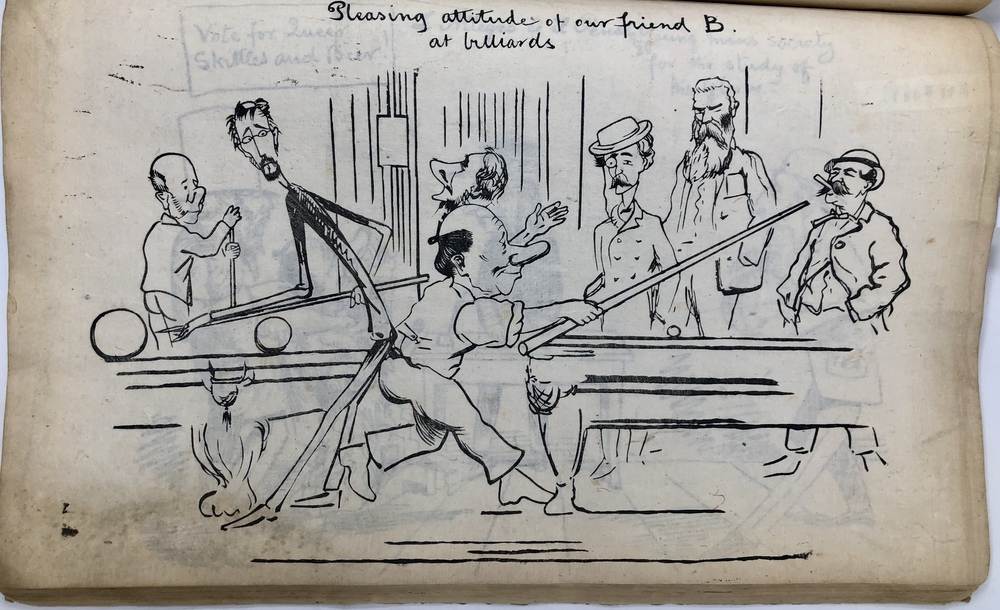 Pleasing attitude of our friend B.
at billiards
Vote for Queen
Skittles and Beer
young mans society
for the study of